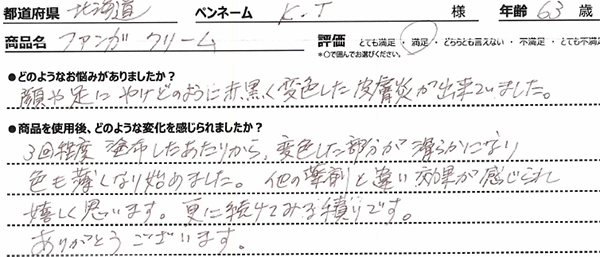 都道府県 北海道 ペンネーム K.T 様 年齢 63 歳
商品名 ファンガクリーム 評価 とても満足・満足・どちらとも言えない・不満足・とても不満足
*○で囲んでお選びください。
●どのようなお悩みがありましたか?
顔や足にやけどのように赤黒く変色した皮膚炎が出来ていました。
●商品を使用後、どのような変化を感じられましたか?
3回程度塗布したあたりから、変色した部分が滑らかになり
色も薄くなり始めました。他の薬剤と違い効果が感じられ
嬉しく思います。更に続けてみる積りです。
ありがとうございます。